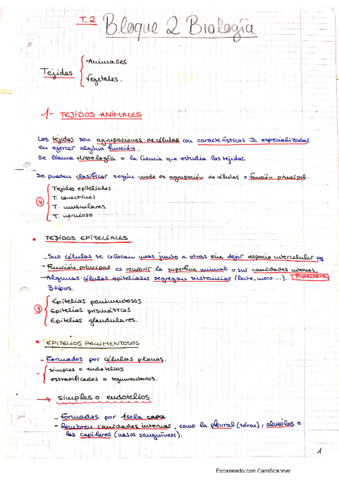 T.2
Bloque 2 Biología
Tejidos
Animales
Vegetales.
1- TEJIDOS ANIMALES
Los tejidos son agrupaciones de células con características Is especializadas
en ejercer alguna función.
Se llama Histología a la Ciencia que estudia los tejidos.
Se pueden clasificar según modo de agrupación de células o función principal.
4
Tejidos epiteliales
T. conectivos
T. musculares
T. nervioso
• TEJIDOS EPITELIALES
- Sus células se colocan unas junto a otras sin dejar espacio intercelular
- Función principal es recubrir la superficie animal o sus cavidades internas.
- Algunas células epiteliales segregan sustancias (leche, moco ...).
3 tipos.
3
Epitelios pavimentosos
Epitelios prismáticos
Epitelios glandulares.
• EPITELIOS PAVIMENTOSOS
- Formados por células planas.
simples o endotelios
estratificados o tegumentarios.
→ simples o endotelios
- Formados por 1 sola capa
- Recubren cavidades internas, como la pleural (tórax), alveolos o
los capilares (vasos sanguíneos).
1
Escaneado con CamScanner